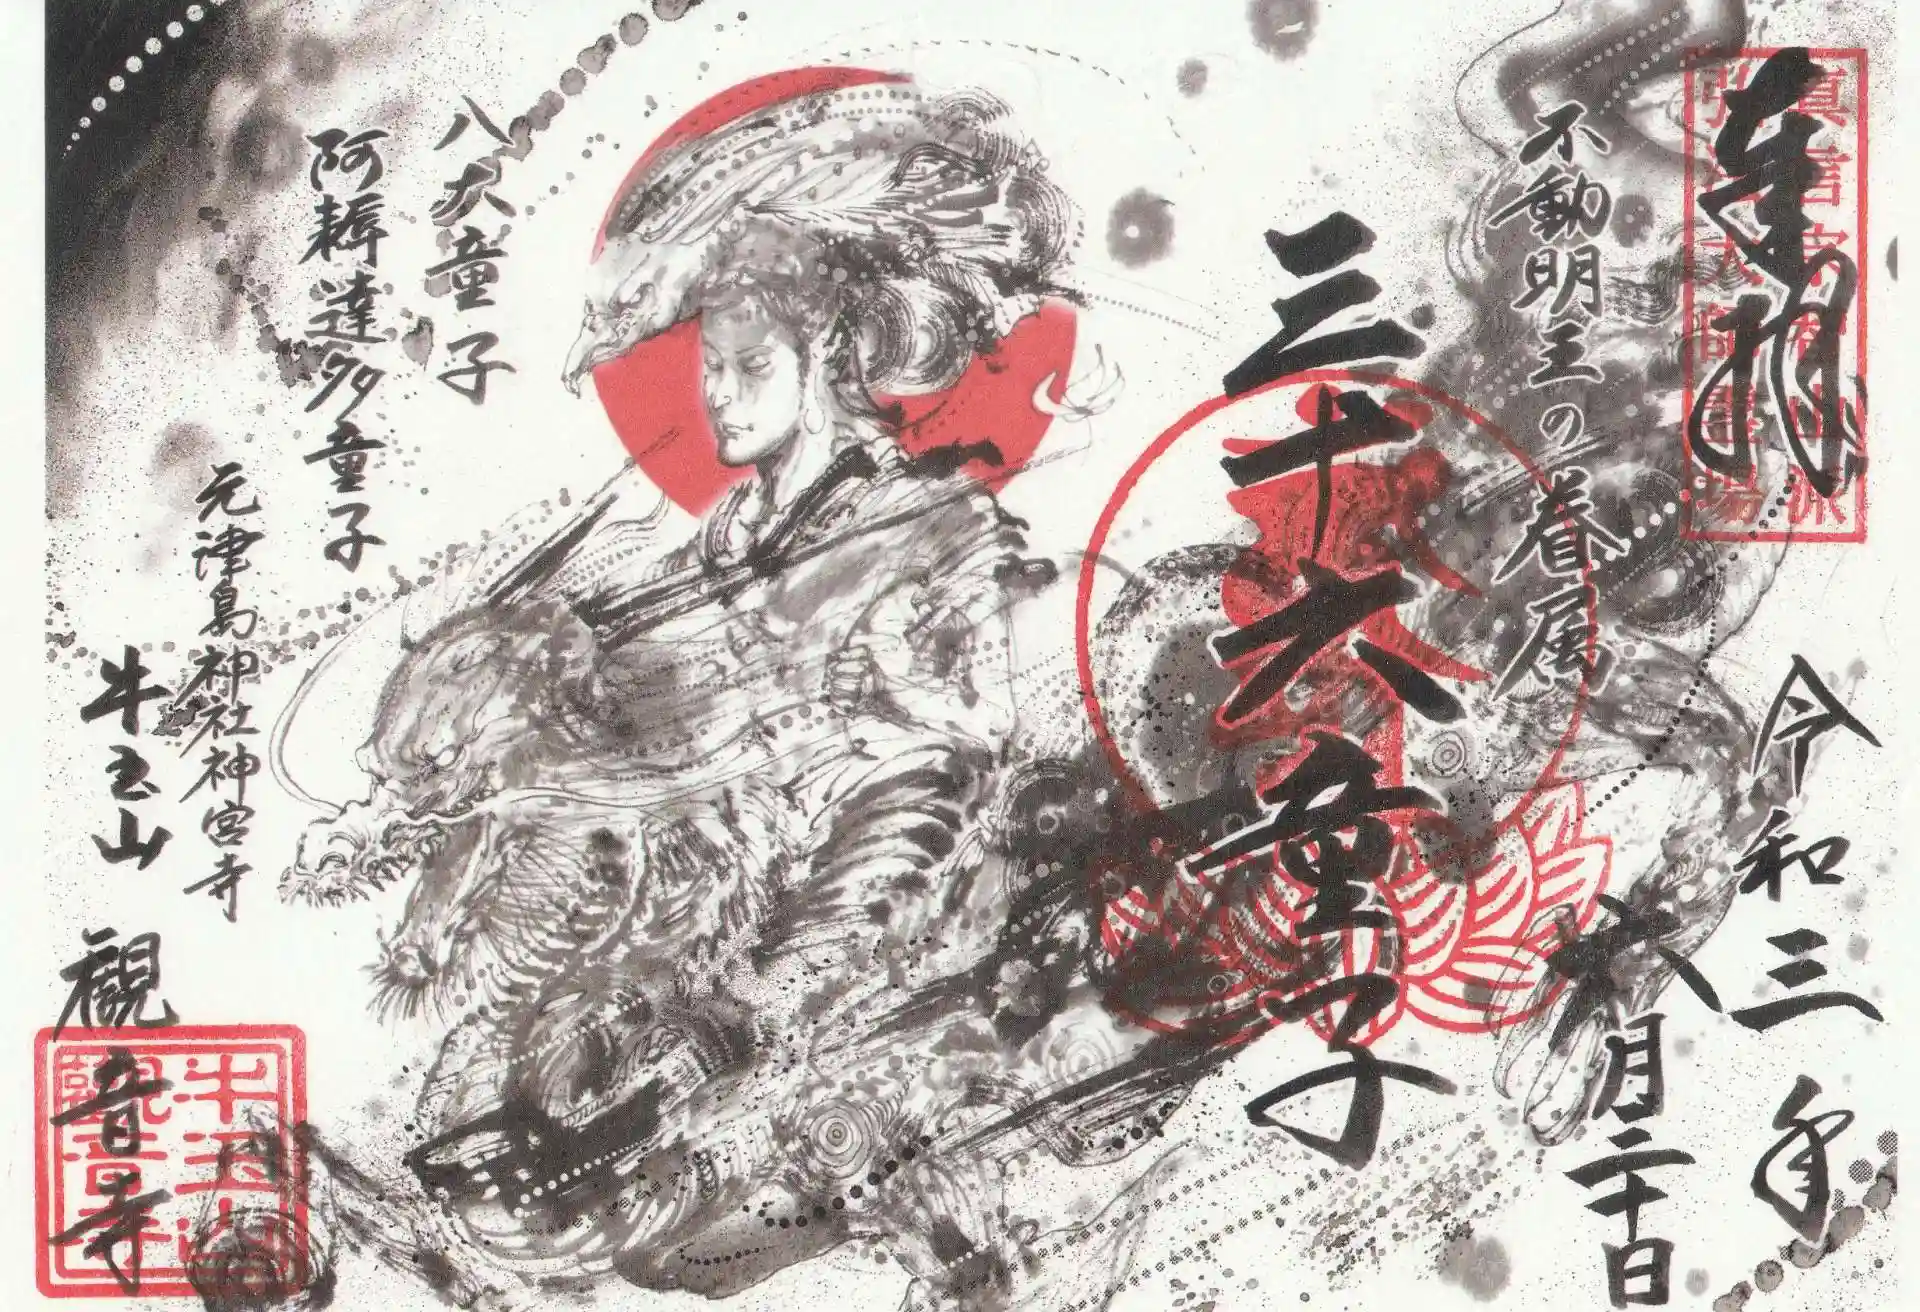 奉拝
真言宗智山派
弘法大師霊場
令和三年
六月二十日
不動明王の眷属
三十六童子
八大童子
阿耨達多童子
元津島神社神宮寺
牛玉山
觀音寺
牛玉山
觀音寺